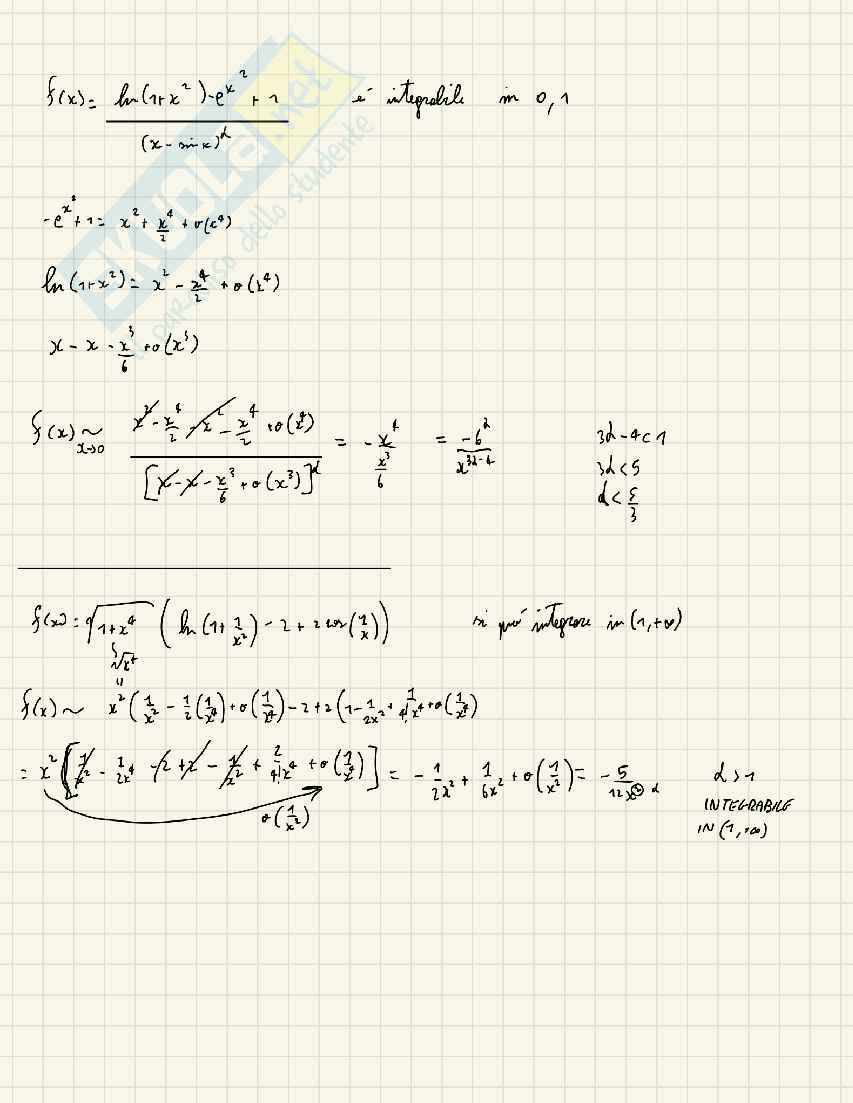 f(x) = (ln(1+x²) - e^x² + 1) / (x - sin x)^α è integrabile in 0,1
-e^x² + 1 = x² + x⁴/2 + o(x⁴)
ln(1+x²) = x² - x⁴/2 + o(x⁴)
x - x - x³/6 + o(x³)
f(x) ~ x→0 (x² - x⁴/2 - x² - x⁴/2 + o(x⁴)) / [x - x - x³/6 + o(x³)]^α = -x⁴ / (x³/6) = -6^α / x^(3α-4) 3α-4<1
3α<5
α < 5/3
f(x) = √(1+x⁴) (ln(1+1/x²) - 2 + 2 cos(1/x)) si può integrare in (1,+∞)
√x⁴
f(x) ~ x² (1/x² - 1/2(1/x⁴) + o(1/x⁴) - 2 + 2(1 - 1/2x² + 1/4!x⁴ + o(1/x⁴)
= x² [1/x² - 1/2x⁴ - 2 + 2 - 1/x² + 2/4!x⁴ + o(1/x⁴)] = -1/2x² + 1/6x² + o(1/x²) = -5/12x² α α>1
o(1/x²)
INTEGRABILE
IN (1,+∞)
SKUOLA.net
il paradiso dello studente